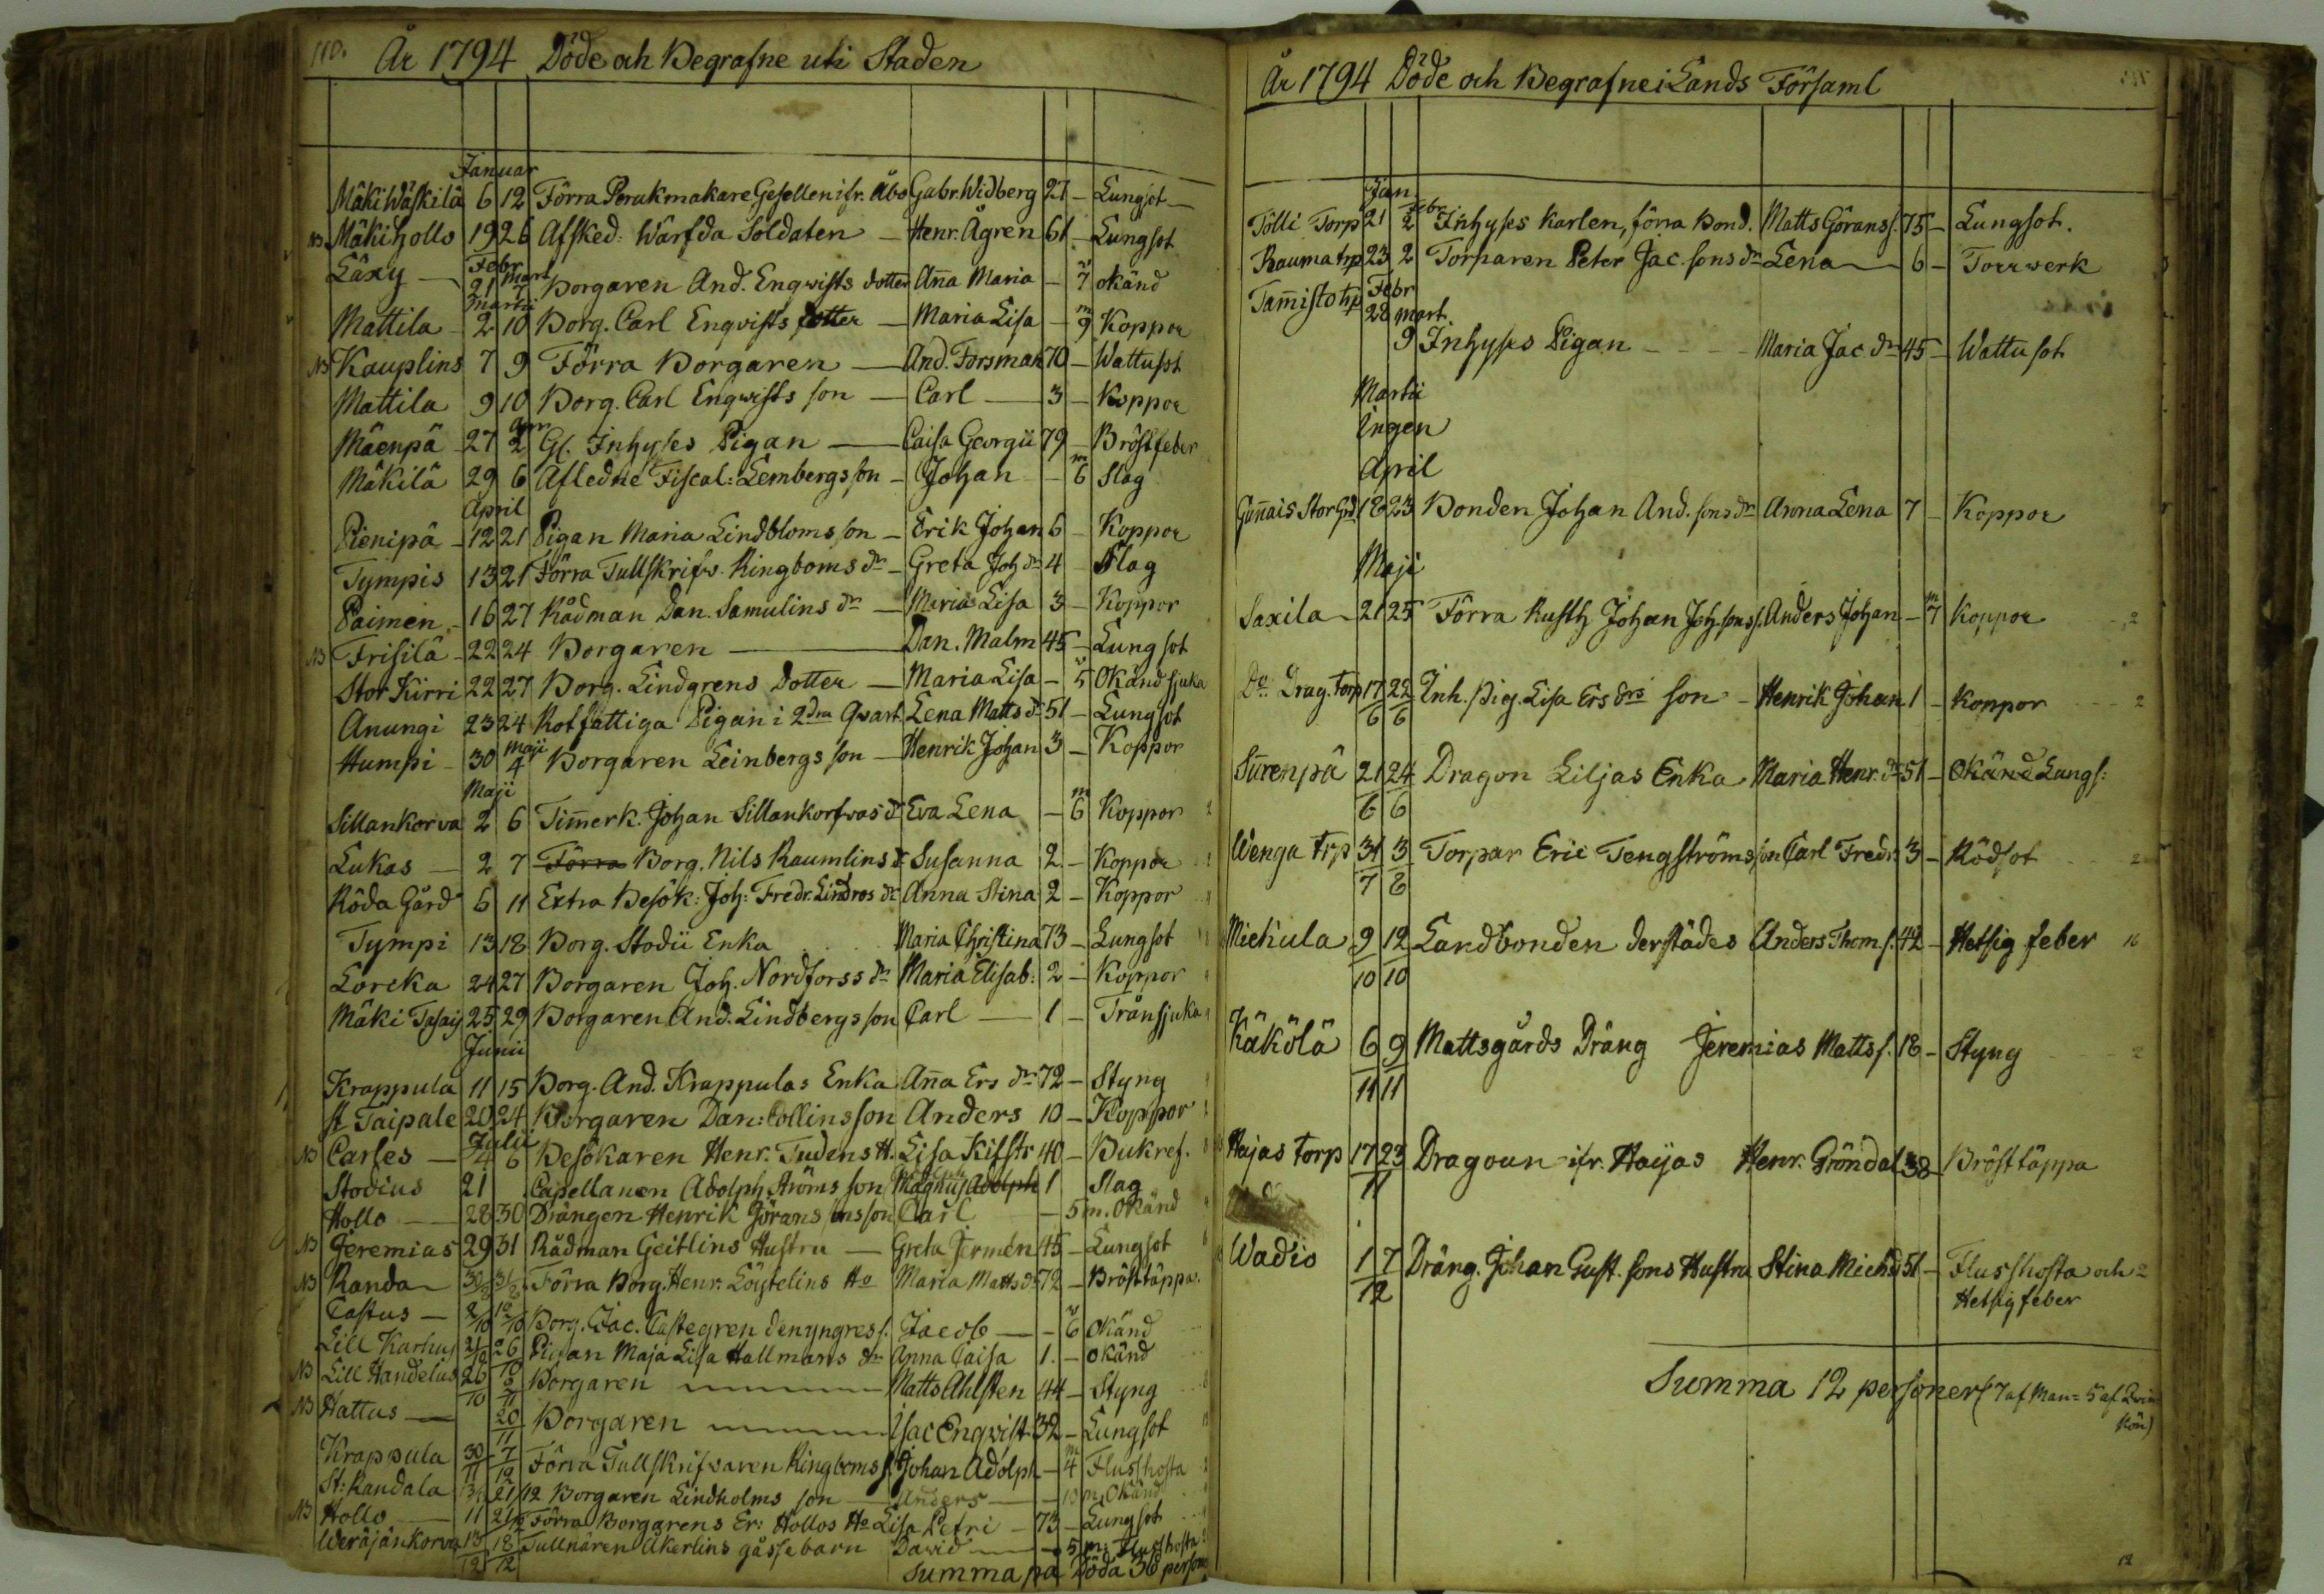 110. År 1794 Döde och Begrafne uti Staden
Januar
Mäki Wäskilä 6 12 Förra Perukmakare Gesellen ifr. Åbo Gabr. Widberg 27 – Lungsot
NB Mäki Hollo 19 26 Afsked: Warfda Soldaten – Henr. Ågren 61 – Lungsot
Febr Mart
Läxy 21 7 Borgaren And. Enqwists dotter Aña Maria – 7 okänd
Martii
Mattila 2 10 Borg. Carl Enqvists dotter – Maria Lisa – 9 m Koppor
NB Kauplins 7 9 Förra Borgaren – And. Forsman 70 – Wattusot
Mattila 9 10 Borg. Carl Enqwists son – Carl – 3 – Koppor
Mäenpä 27 2 Gl. Inhyses Pigan – Caisa Georgii 79 – Bröstfeber
Mäkilä 29 6 Afledne Fiscal: Lembergs son – Johan – 6 m Slag
April
Pienipä 12 21 Pigan Maria Lindbloms son – Erik Johan 6 – Koppor
Tympis 13 21 Förra Tullskrifv. Ringboms dr – Greta Joh dr 4 Slag
Paimen 16 27 Rådman Dan. Samulins dr – Maria Lisa 3 – Koppor
NB Frisilä 22 24 Borgaren – Dan. Malm 45 – Lungsot
Stor Kirri 22 27 Borg. Lindgrens Dotter – Maria Lisa – 5 Okänd sjuka
Anungi 23 24 Rotfattiga Pigan i 2dra Qvart. Lena Matts dr 51 – Lungsot
Maji
Humpi 30 4 Borgaren Leinbergs son – Henrik Johan 3 – Koppor
Maji
Sillankorva 2 6 Tim̃erk. Johan Sillankorfvas dr Eva Lena – 6 m Koppor
Lukas – 2 7 Förra Borg. Nils Raumlins dr Susanna 2 – Koppor
Röda Gård 6 11 Extra Besök: Joh: Fredr. Lindros dr Anna Stina 2 – Koppor
Tympi 13 18 Borg. Stodii Enka Maria Christina 73 – Lungsot
Loreka 24 27 Borgaren Joh. Nordforss dr Maria Elisab: 2 – Koppor
Mäki 25 29 Borgaren And. Lindbergs son Carl – 1 – Trånsjuka
Junii
Krappula 11 15 Borg. And. Krappulas Enka Aña Ers dr 72 – Styng
St Taipale 20 24 Borgaren Dan: Collins son Anders 10 – Koppor
Julii
NB Carles – 4 6 Besökaren Henr. Tudens H. Lisa 40 – Bukref.
Stodius 21 Capellanen Adolph Ströms son Magnus Adolph 1 Slag
Hollo – 28 30 Drängen Henrik Görans sons son Carl – 5 m. Okänd
NB Jeremias 29 31 Rådman Geitlins Hustru – Greta Jermén 45 – Lungsot
NB Randa 30/8 31/8 Förra Borg. Henr. Löytelins Ho Maria Matts dr 72 – Brösttäppa.
Castus – 2/10 12/10 Borg. Jac. Castegren den yngres s. Jacob – 6 Okänd
Lill Karhu 21/10 26/10 Pigan Maja Lisa Hallmans dr Anna Caisa 1. – okänd
NB Lill Handelius 26/10 2/11 Borgaren – Matts Ahlsten 44 – Styng
NB Hattus – 20/11 Borgaren – Isac Enqwist 32 – Lungsot
Krappula 30/11 7/12 Förra Tullskrifvaren Ringboms s. Johan Adolph – 4 m Flusshosta
St: Randala 21/12 Borgaren Lindholms son – Anders – 10 m. Okänd
NB Hollo – 11 21/12 Förra Borgarens Er: Hollos Ho Lisa Petri – 73 – Lungsot
Weräjänkorva 13/12 18/12 Tullnären Åkerlins gåssebarn David – 5 m: Flusshosta
Summa pa Döda 36 person
År 1794 Döde och Begrafne i Lands Församl
Jan. Febr
Tölli Torp 21 2 Inhyses Karlen, förra Bond. Matts Görans s. 75 – Lungsot.
Rauma trp 23 2 Torparen Peter Jac. sons dr Lena – 6 – Torrwerk
Febr
Tam̃isto trp 28 Mart.
9 Inhyses Pigan – Maria Jac. dr 45 – Wattusot
Martii
Ingen
April
Guñais Storgrd. 18 23 Bonden Johan And. sons dr Anna Lena 7 – Koppor
Maji
Saxila 21 25 Förra Rusth Johan Joh. sons s. Anders Johan – 7 m Koppor
Do Drag. torp 17/6 22/6 Inh. Pig. Lisa Ers drs son – Henrik Johan 1 – Koppor
Surenpä 21/6 24/6 Dragon Liljas Enka Maria Henr. dr 51 – Okänd Lungs:
Wenga trp 31/7 3/8 Torpar Eric Tengströms son Carl Fredr: 3 – Rödsot
Mickula 9/10 12/10 Landbonden derstädes Anders Thom s. 42 – Hetsig feber
Käkölä 6/11 9/11 Mattsgårds Dräng Jeremias Matts s. 18 – Styng
Hajas torp 17/11 23 Dragoun ifr. Haijas Henr. Gröndal 38 Brösttäppa
Wadio 1/12 7 Dräng. Johan Gust. sons Hustru Stina Mich dr 51 – Flusshosta och
Hetsig feber
Summa 12 personer (7 af Man= 5 af Qvin
kön)